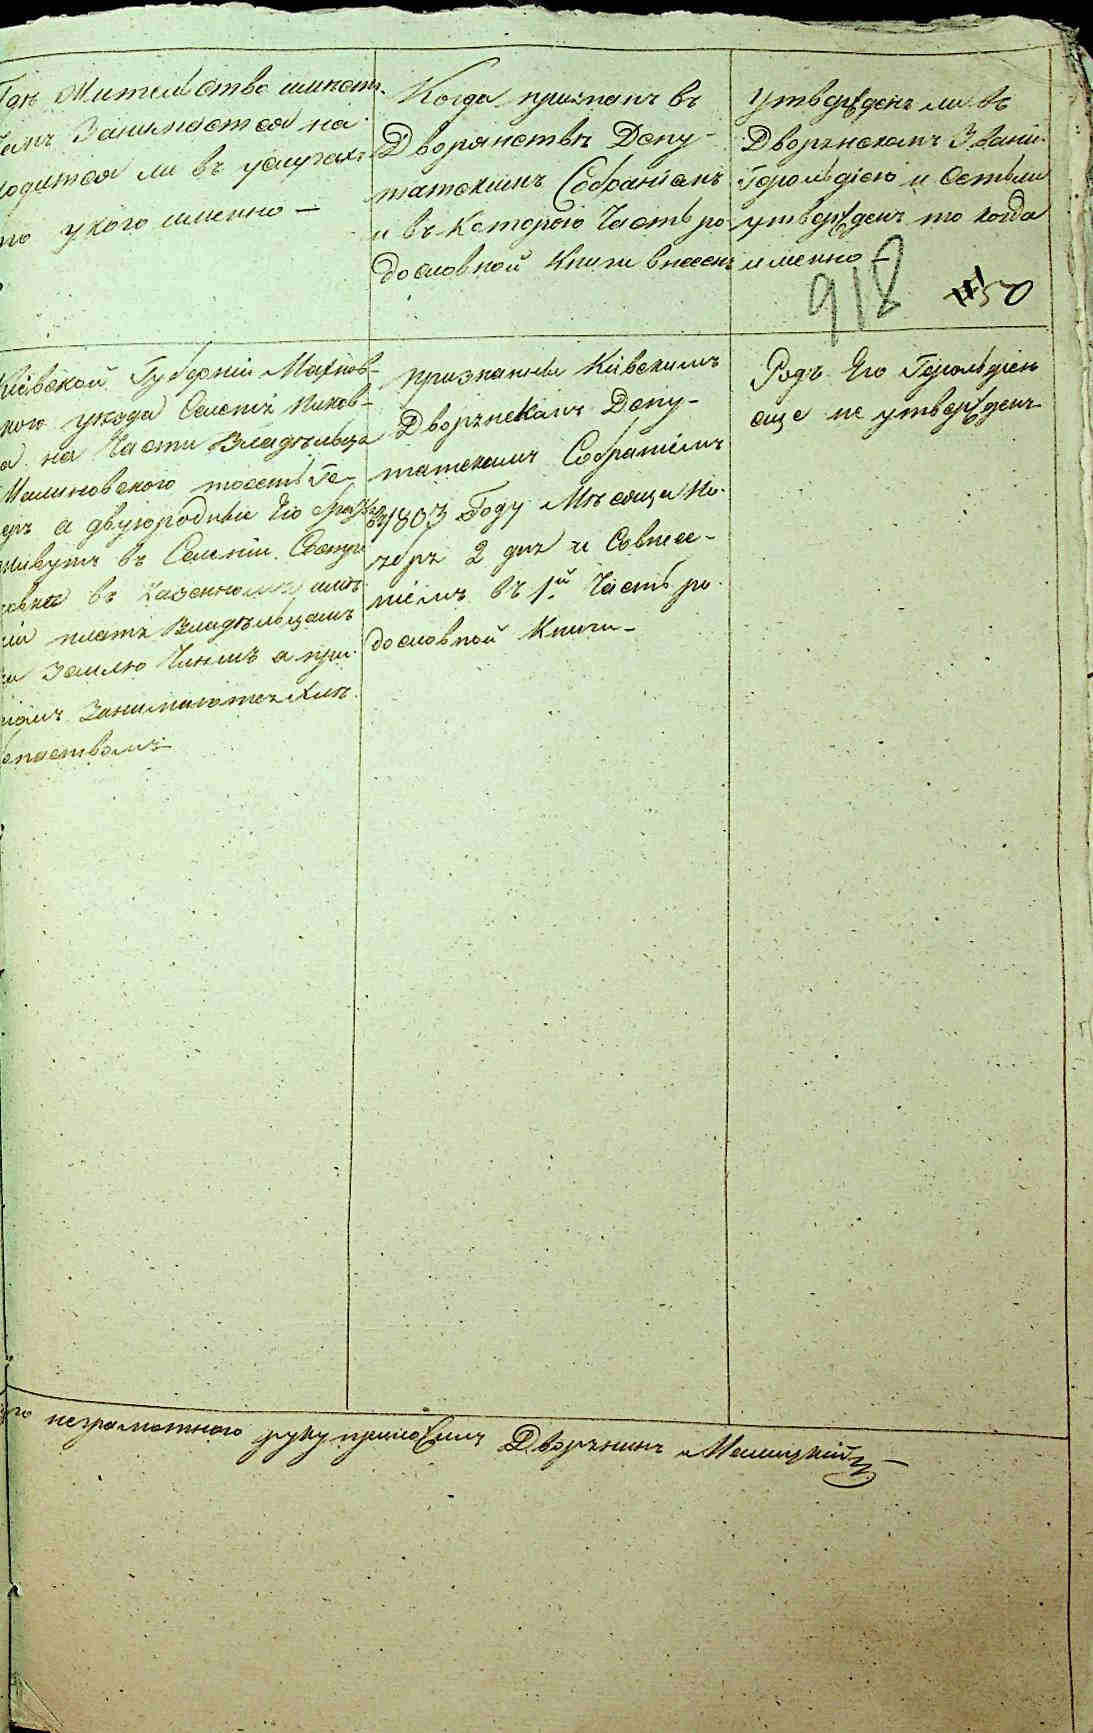 Гдѣ Жительство имѣетъ
чемъ Занимается на
ходится ли въ услугахъ
то укого именно —
Когда признанъ въ
Дворянствѣ Депу-
татскимъ Собраніемъ
и въ Которою Часть ро
дословной Книги внесенъ
Утвержденъ ли въ
Дворянскомъ Званіи
Герольдіею и Естьли
утвержденъ то когда
именно —
918
50
Кіевской Губерніи Махнов-
кого уезда Селеніи Пиков-
а на Части Владѣльца
Малиновского
а двуюродные Его
живутъ въ Селеніи
въ Казенномъ
платя Владѣльцамъ
Землю Чиншъ а при
томъ Занимаются Хлѣ
бопаствомъ
признанный Кіевскимъ
Дворянскимъ Депу-
татскимъ Собраніемъ
въ 1803 Году Мѣсяца Но-
ября 2 дня и Совнес-
ніемъ въ 1й Часть ро
дословной Книги —
Родъ Его Герольдіею
еще не утвержденъ
неграмотного руку приложилъ Дворянинъ